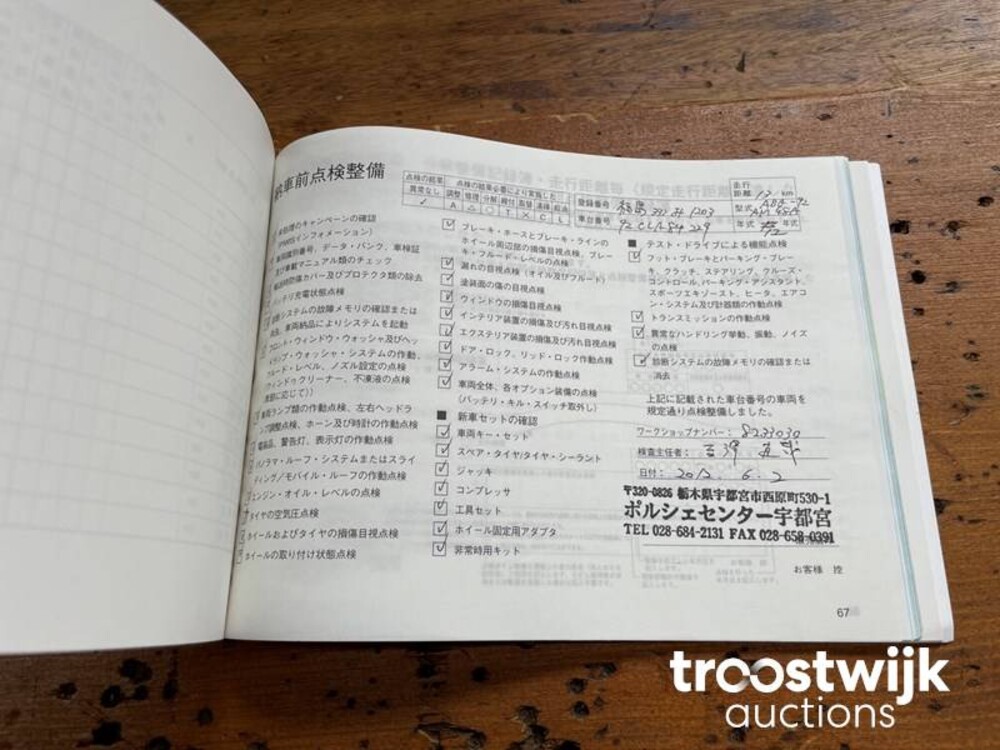 車前点検整備
点検の結果 点検の結果必要により実施した
異常なし 調整 修理 分解 締付 取替 清掃 給油
✓ A △ ○ T × C L
登録番号
車台番号
走行距離 12 km
型式 ABA-92
年式 年式
処理のキャンペーンの確認
(PWRSインフォメーション)
車両識別番号、データ・バンク、車検証
及び車載マニュアル類のチェック
輸送時防傷カバー及びプロテクタ類の除去
バッテリ充電状態点検
診断システムの故障メモリの確認または
消去、車両納品によりシステムを起動
フロント・ウィンドウ・ウォッシャ及びヘッ
ドランプ・ウォッシャ・システムの作動、
フルード・レベル、ノズル設定の点検
ウィンドゥクリーナー、不凍液の点検
に応じて))
車両ランプ類の作動点検、左右ヘッドラ
ンプ調整点検、ホーン及び時計の作動点検
電装品、警告灯、表示灯の作動点検
パノラマ・ルーフ・システムまたはスライ
ディング/モバイル・ルーフの作動点検
エンジン・オイル・レベルの点検
タイヤの空気圧点検
ホイールおよびタイヤの損傷目視点検
ホイールの取り付け状態点検
ブレーキ・ホースとブレーキ・ラインの
ホイール周辺部の損傷目視点検、ブレー
キ・フルード・レベルの点検
漏れの目視点検(オイル及びフルード)
塗装面の傷の目視点検
ウィンドウの損傷目視点検
インテリア装置の損傷及び汚れ目視点検
エクステリア装置の損傷及び汚れ目視点検
ドア・ロック、リッド・ロック作動点検
アラーム・システムの作動点検
車両全体、各オプション装備の点検
(バッテリ・キル・スイッチ取外し)
■ 新車セットの確認
車両キー・セット
スペア・タイヤ/タイヤ・シーラント
ジャッキ
コンプレッサ
工具セット
ホイール固定用アダプタ
非常時用キット
■ テスト・ドライブによる機能点検
フット・ブレーキとパーキング・ブレー
キ、クラッチ、ステアリング、クルーズ・
コントロール、パーキング・アシスタント、
スポーツエキゾースト、ヒータ、エアコ
ン・システム及び計器類の作動点検
トランスミッションの作動点検
異常なハンドリング挙動、振動、ノイズ
の点検
診断システムの故障メモリの確認または
消去
上記に記載された車台番号の車両を
規定通り点検整備しました。
ワークショップナンバー: 8233030
検査主任者:
日付: 2012. 6. 2
〒320-0826 栃木県宇都宮市西原町530-1
ポルシェセンター宇都宮
TEL 028-684-2131 FAX 028-658-0391
お客様 控
67
troostwijk
auctions